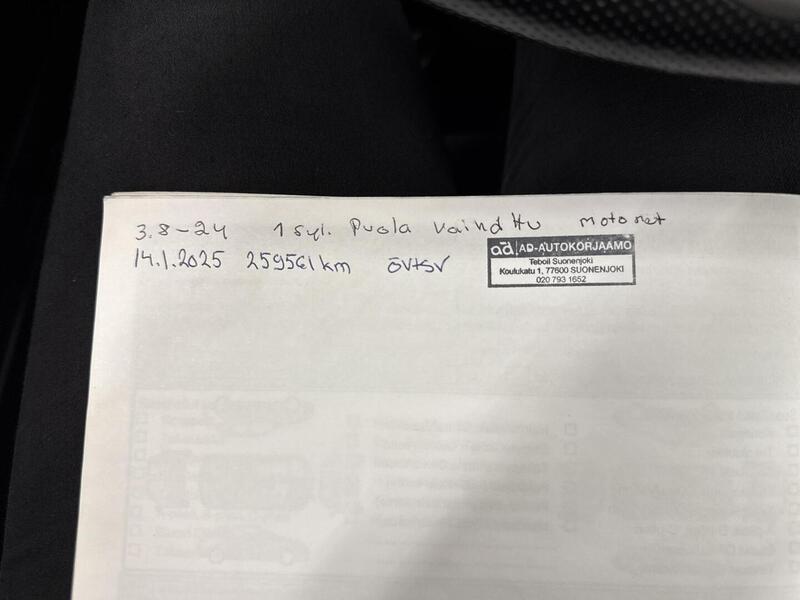 3.8-24 1 syl. Puola vaindttu motonet
14.1.2025 259561km ÖV+SV
ad AD-AUTOKORJAAMO
Teboil Suonenjoki
Koulukatu 1, 77600 SUONENJOKI
020 793 1652